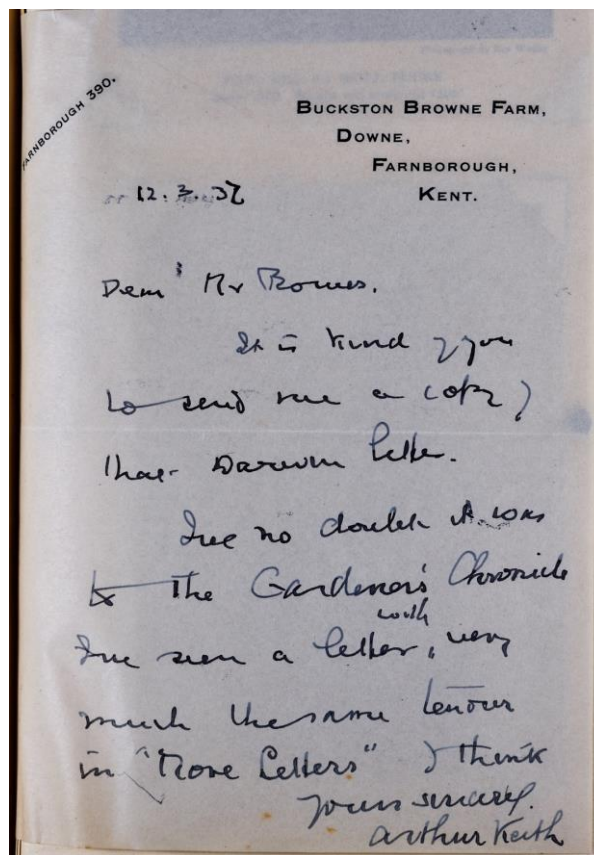 FARNBOROUGH 390.
BUCKSTON BROWNE FARM,
DOWNE,
FARNBOROUGH,
KENT.
12.3.37
Dear Mr
It is kind of you
to send me a copy of
that Darwin letter.
I've no doubt it was
to The Gardener's Chronicle
with
I've seen a letter, very
much the same tenour
in "More Letters" I think
yours sincerely.
Arthur Keith